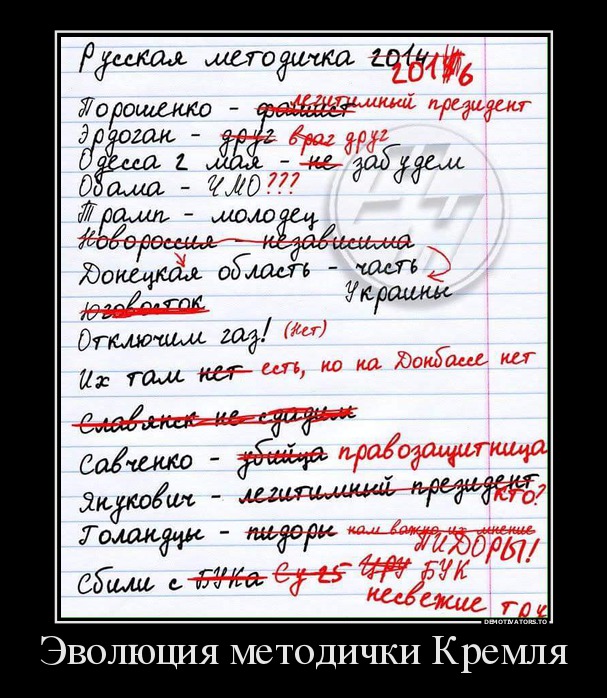 Русская методичка 2014 2016
Порошенко - фашист легитимный президент
Эрдоган - друг враг друг
Одесса 2 мая - не забудем
Обама - ЧМО???
Трамп - молодец
Новороссия - независима
Донецкая область - часть
Юговосток Украины
Отключим газ! (Нет)
Их там нет есть, но на Донбассе нет
Славянск не сдадим
Савченко - убийца правозащитница
Янукович - легитимный президент кто?
Голандцы - пидоры нам важно их мнение
ПИДОРЫ!
Сбили с БУКа Су-25 ЦРУ БУК
несвежие тру
DEMOTIVATORS.TO
Эволюция методички Кремля